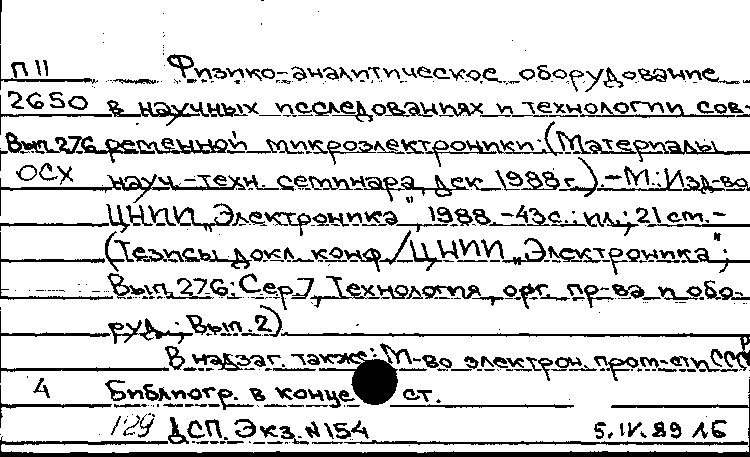 П11 Физико-аналитическое оборудование
2650 в научных исследованиях и технологии сов-
Вып.276 ременной микроэлектроники: (Материалы
ОСХ науч.-техн. семинара, дек 1988 г.).-М.: Изд-во
ЦНИИ „Электроника", 1988.-43с.: ил.; 21 см.-
(Тезисы докл. конф. / ЦНИИ „Электроника";
Вып. 276: Сер. 7, Технология, орг. пр-ва и обо-
руд.; Вып. 2)
В надзаг. также: М-во электрон. пром-сти СССР
4 Библиогр. в конце ст.
129 ДСП. Экз. №154 5.IV.89 16